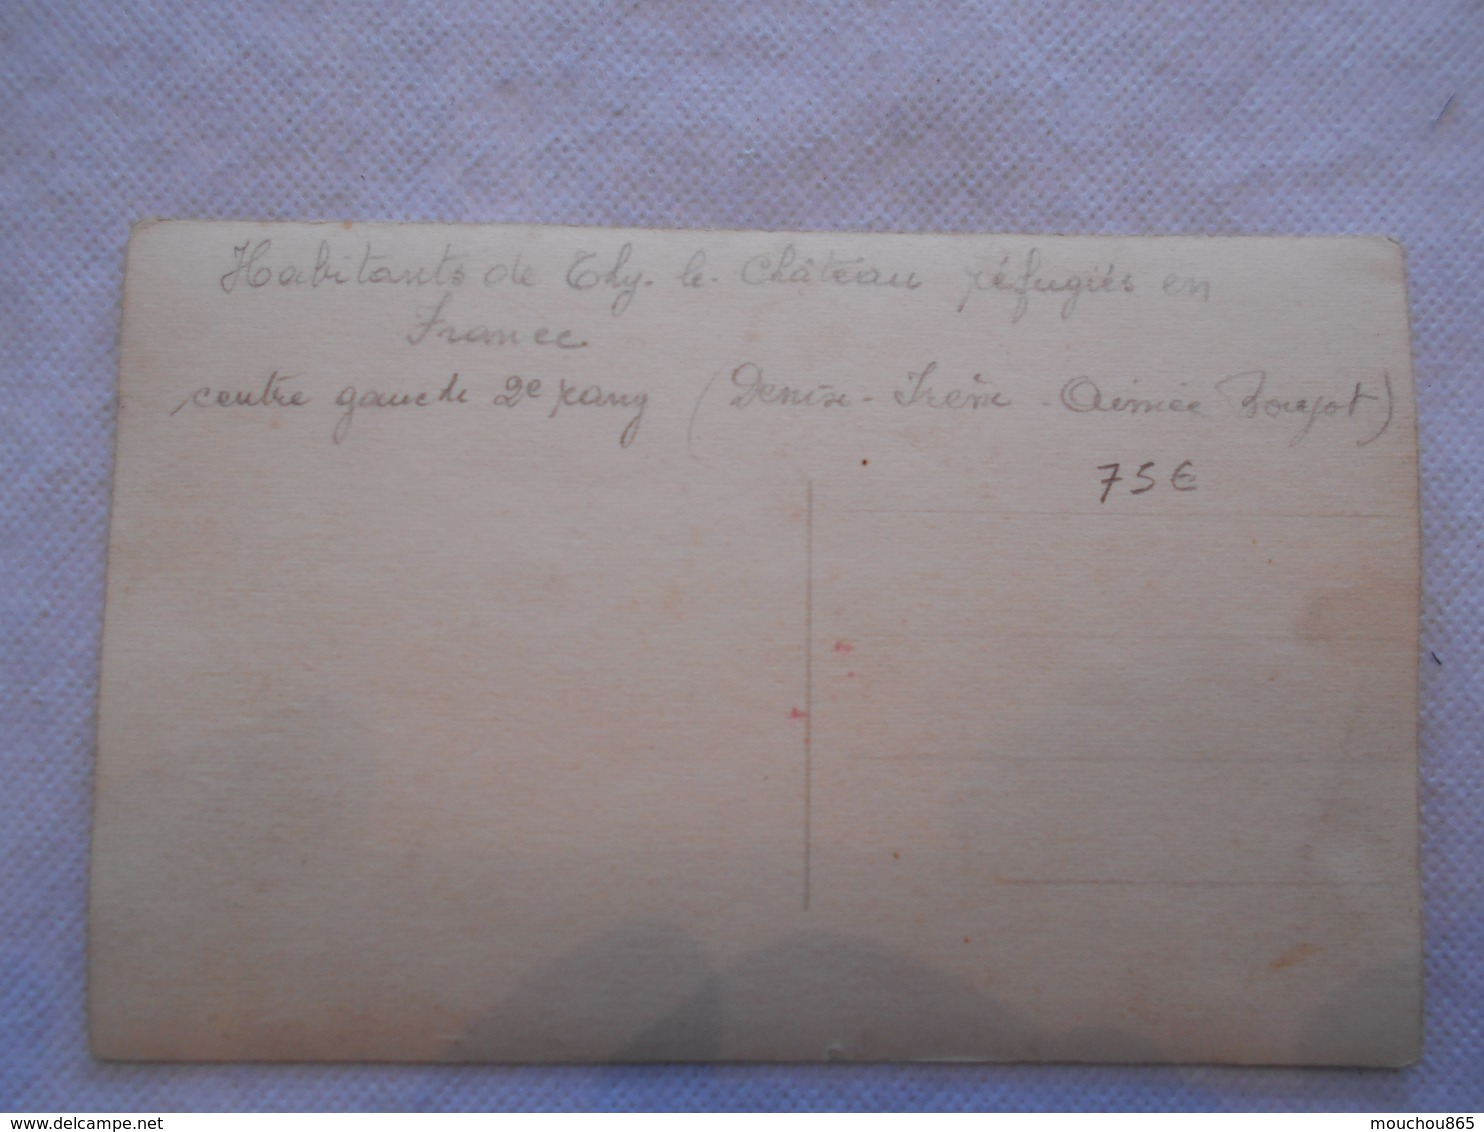 Habitants de Thy-le-Château réfugiés en
France
centre gauche 2e rang (Denise - Irène - Aimée
75€
www.delcampe.net
mouchou865